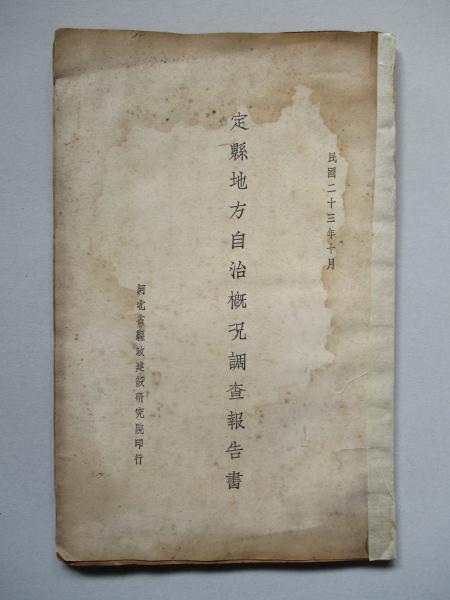 民國二十三年十月
定縣地方自治概況調查報告書
河北省縣政建設研究院印行